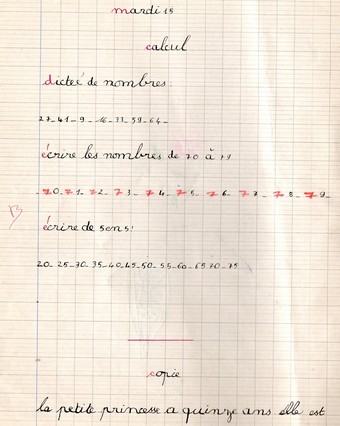 mardi 15
calcul
dictée de nombres:
27_41_9_16_33_59_64_
écrire les nombres de 70 à 79
_70_71_72_73_74_75_76_77_78_79_
B
écrire de 5 en 5:
20_25_30_35_40_45_50_55_60_65_70_75
copie
la petite princesse a quinze ans elle est